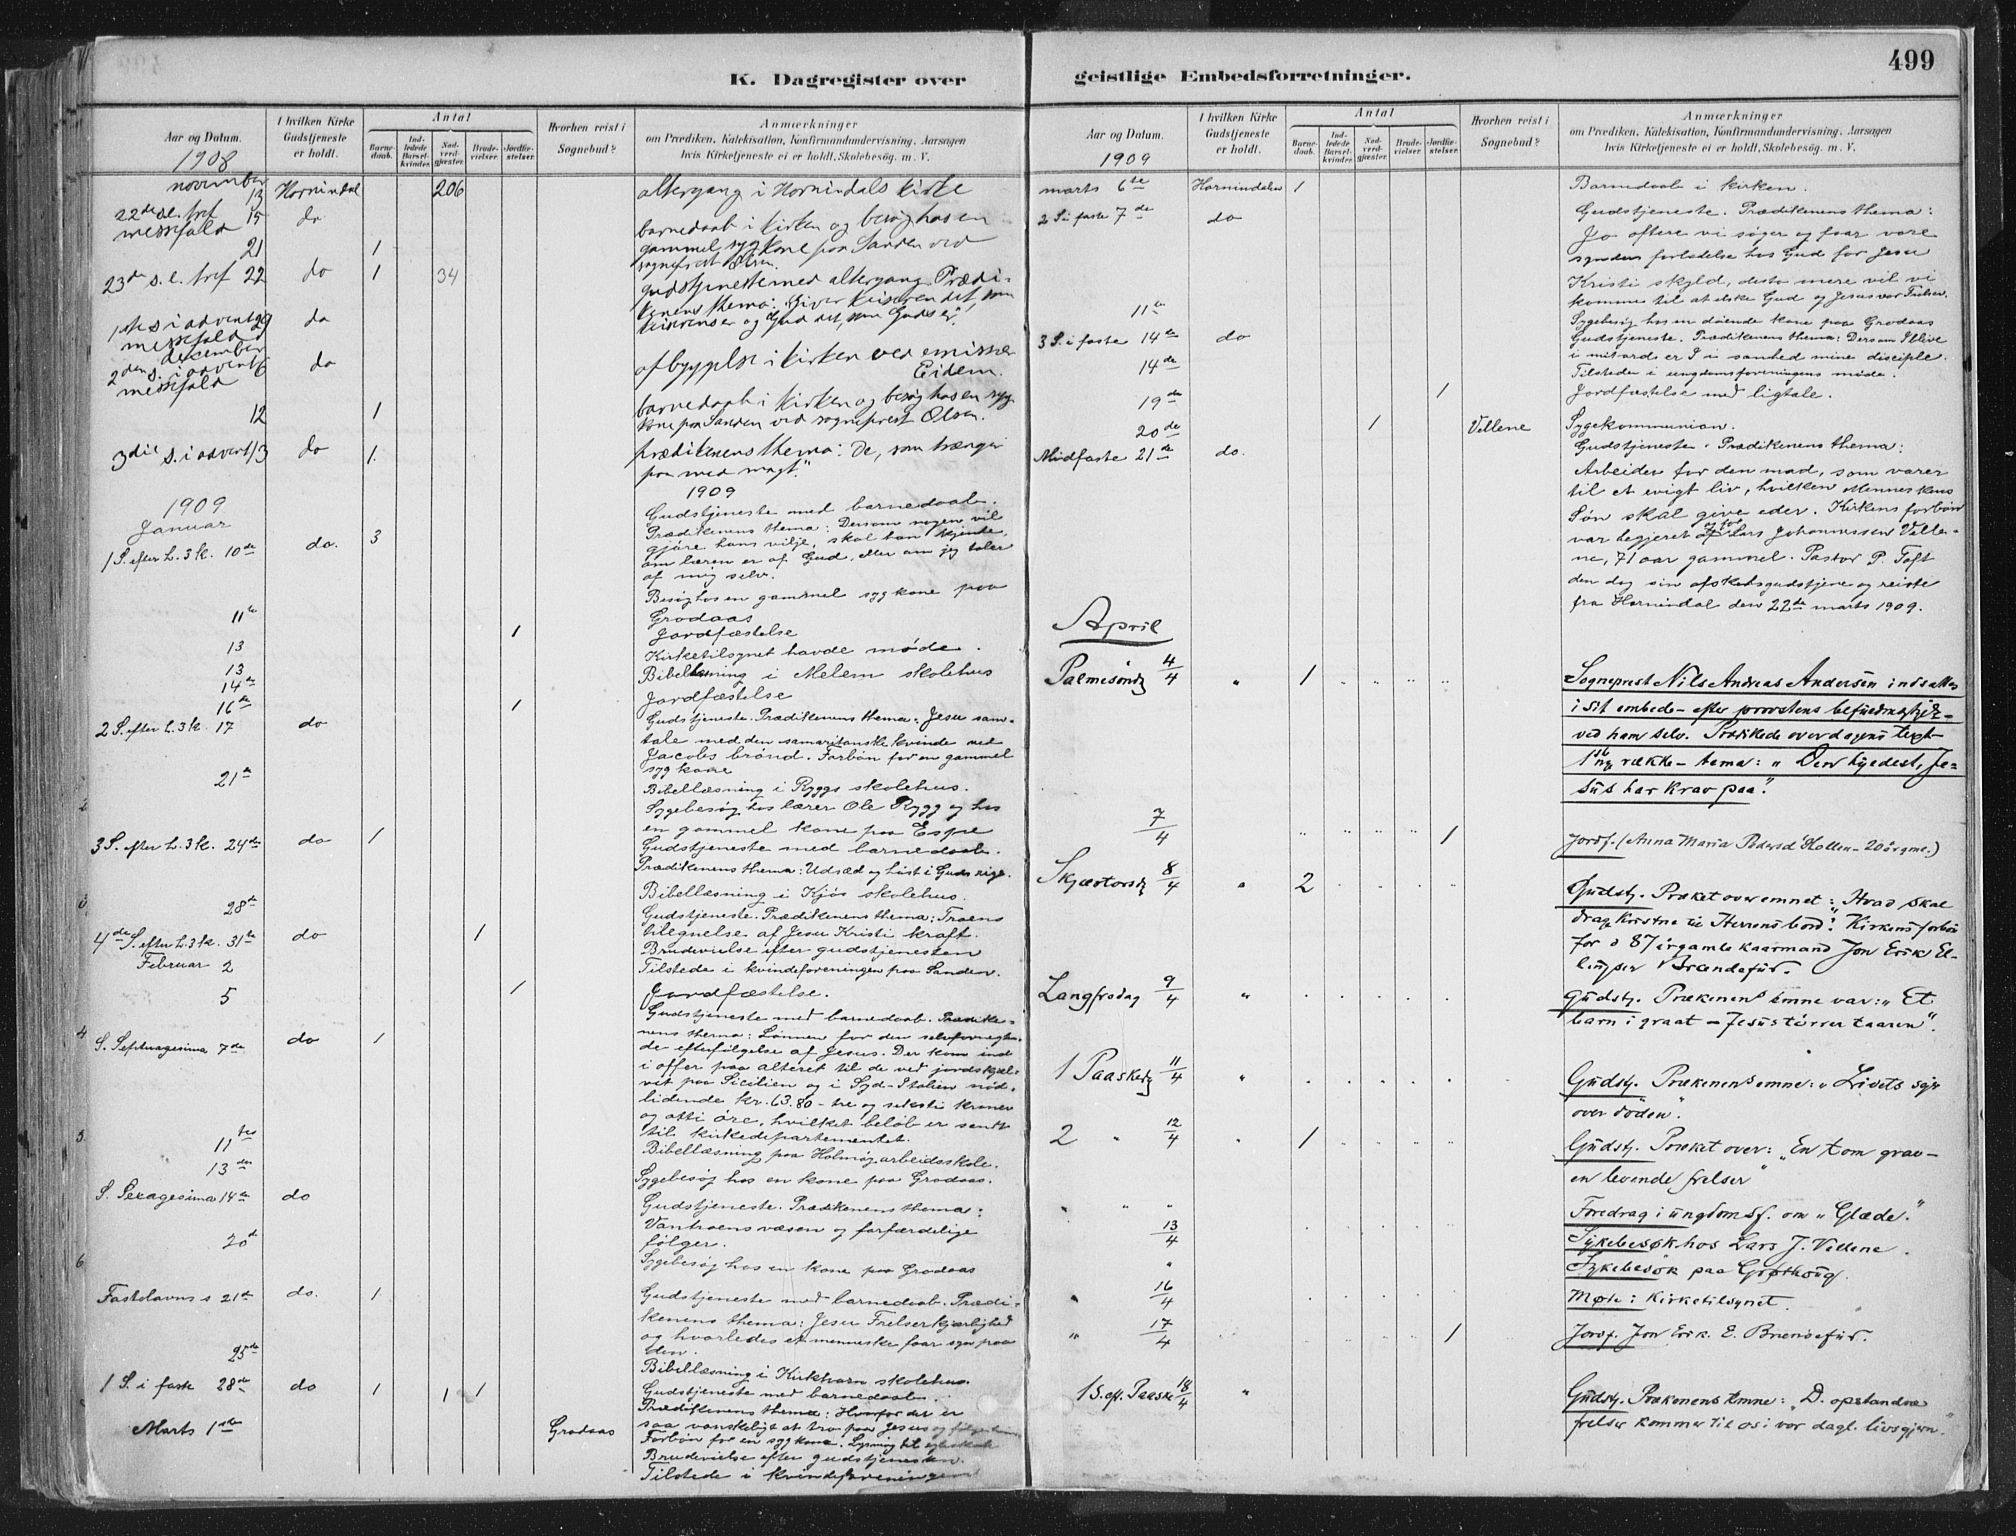 499
K. Dagregister over
geistlige Embedsforretninger.
Aar og Datum.
I hvilken Kirke Gudstjeneste er holdt.
Antal
Barnedaab.
Indledede Barselkvinder.
Nadverdgjester.
Brudevielser.
Jordfæstelser.
Hvorhen reist i Sognebud?
Anmærkninger
om Prædiken, Katekisation, Konfirmandundervisning, Aarsagen
hvis Kirketjeneste ei er holdt, Skolebesøg. m. V.
1908
november
13 Hornindal 206 altergang i Hornindals kirke
22de s. e. tref 15 do
messefald
barnedaab i kirken og besøg hos en
21 1 gammel syg kone paa Sanden ved
sogneprest Olsen.
23de s. e. tref 22 do 1 34 gudstjeneste med altergang. Prædi-
kenens thema: Giver keiseren det, som
keiserens er og Gud det, som Guds er.
1ste s. i advent 29 do
messefald
december
2den s. i advent 6 do opbyggelse i kirken ved emissær
messefald Eidem.
12 1 barnedaab i kirken og besøg hos en syg
kone paa Sanden ved sogneprest Olsen.
3die s. i advent 13 do 1. prædikenens thema: De, som trænger
paa med magt."
1909
1909
Januar
Gudstjeneste med barnedaab.
1 S. efter h. 3 k. 10de do. 3 Prædikenens thema: Dersom nogen vil
gjøre hans vilje, skal han kjende,
om læren er af Gud, eller om jeg taler
af mig selv.
Besøg hos en gammel syg kone paa
11te Grodaas
13 1 Jordfæstelse
13 Kirketilsynet havde møde.
14de Bibellæsning i Melem skolehus
16de 1 Jordfæstelse
2 S. efter h. 3 k. 17 do Gudstjeneste. Prædikenens thema: Jesu sam-
tale med den samaritanske kvinde ved
Jacobs brønd. Forbøn for en gammel
syg kone
21de Bibellæsning i Ryggs skolehus.
Sygebesøg hos lærer Ole Rygg og hos
en gammel kone paa Espe
3 S. efter h. 3 k. 24de do 1 Gudstjeneste med barnedaab.
Prædikenens thema: Udsæd og høst i Guds rige.
28de Bibellæsning i Kjøs skolehus.
4de S. efter h. 3 k. 31te do 1 Gudstjeneste. Prædikenens thema: Troens
tilegnelse af Jesu Kristi kraft.
Brudevielse efter gudstjenesten
Februar 2 Tilstede i kvindeforeningen paa Sanden.
5 1 Jordfæstelse.
S. Septuagesima 7de do 1 Gudstjeneste med barnedaab. Prædike-
nens thema: Lønnen for den selvfornegten-
de efterfølgelse af Jesus. Der kom ind
i offer paa alteret til de ved jordskjæl-
vet paa Sicilien og i Syd-Italien nød-
lidende kr. 63.80 - tre og seksti kroner
og otti øre, hvilket beløb er sendt
til kirkedepartementet.
11te Bibellæsning paa Holmøy arbeidsskole.
13de Sygebesøg hos en kone paa Grodaas.
S. Sexagesima 14de do Gudstjeneste. Prædikenens thema:
Vantroens væsen og forfærdelige
følger.
20d Sygebesøg hos en kone paa Grodaas
Fastelavns s 21de do. 1 Gudstjeneste med barnedaab. Prædi-
kenens thema: Jesu Frelserkjærlighed
og hvorledes et menneske faar øye paa
den.
25de Bibellæsning i Kirkhorn skolehus.
1 S. i faste 28de do 1 1 1 Gudstjeneste med barnedaab.
Prædikenens thema: Hvorfor det er
saa vanskeligt at tro paa Jesus og
Marts 1ste Grodaas Forbøn for en syg kone.
Brudevielse efter gudstjenesten.
Tilstede i kvindeforeningen
Aar og Datum.
I hvilken Kirke Gudstjeneste er holdt.
Antal
Barnedaab.
Indledede Barselkvinder.
Nadverdgjester.
Brudevielser.
Jordfæstelser.
Hvorhen reist i Sognebud?
Anmærkninger
om Prædiken, Katekisation, Konfirmandundervisning, Aarsagen
hvis Kirketjeneste ei er holdt, Skolebesøg. m. V.
1909
marts 6te Hornindalen 1 Barnedaab i kirken.
2 S i faste 7de do Gudstjeneste. Prædikenens thema:
Jo oftere vi søger og faar vore
synders forladelse hos Gud for Jesu
Kristi skyld, desto mere vil vi
komme til at elske Gud og Jesus vor Frelser.
11te Sygebesøg hos en døende kone paa Grodaas
3 S. i faste 14de do Gudstjeneste. Prædikenens thema: Dersom I blive
i mit ord er I i sandhed mine disciple.
14de Tilstede i ungdomsforeningens møde.
19de 1 Jordfæstelse med ligtale.
20de 1 Vellene Sygekommunion.
Midfaste 21de do. Gudstjeneste. Prædikenens thema:
Arbeider for den mad, som varer
til et evigt liv, hvilken Menneskens
Søn skal give eder. Kirkens forbøn
var begjeret af og for Lars Johannessen Velle-
ne, 71 aar gammel. Pastor P. Toft
den dag sin afskedsgudstjene og reiste
fra Hornindal den 22de marts 1909.
April
Palmesøndg 4/4 " 1 Sogneprest Nils Andreas Andersen indsattes
i sit embede - efter provstens befuldmægtigelse -
ved ham selv. Prædikede over dagens text -
1ste ny række - tema: "Den lyedest, Je-
sus har krav paa".
7/4 1 Jordf. (Anna Maria Pedersd Hollen - 20 år gml.)
Skjærtorsdg 8/4 " 2 Gudstj. Præket over emnet: "Hvad skal
drage kristne til Herrens bord". Kirkens forbøn
for d 87 årgamle kaarmand Jon Erik El-
lingsen Brændefur.
Langfredag 9/4 " Gudstj. Prækenens emne var: "Et
barn i graat - Jesus tørrer taaren".
1 Paaskedg 11/4 " Gudstj. Prækenens emne: "Livets seir
over døden".
2 " 12/4 " 1 Gudstj. Præket over: "En tom grav -
en levende frelser"
" " " Foredrag i ungdomsf. om "Glæde."
13/4 Sykebesøk hos Lars J. Vellene.
" Sykebesøk paa Grøthoug.
" 16/4 Møte i kirketilsynet.
" 17/4 1 Jordf. Jon Erik E. Brendefur.
1 S. eft. Paaske 18/4 " Gudstj. Prækenens emne: "D. opstandne
frelser kommer til os i vor dagl. livsgjern."